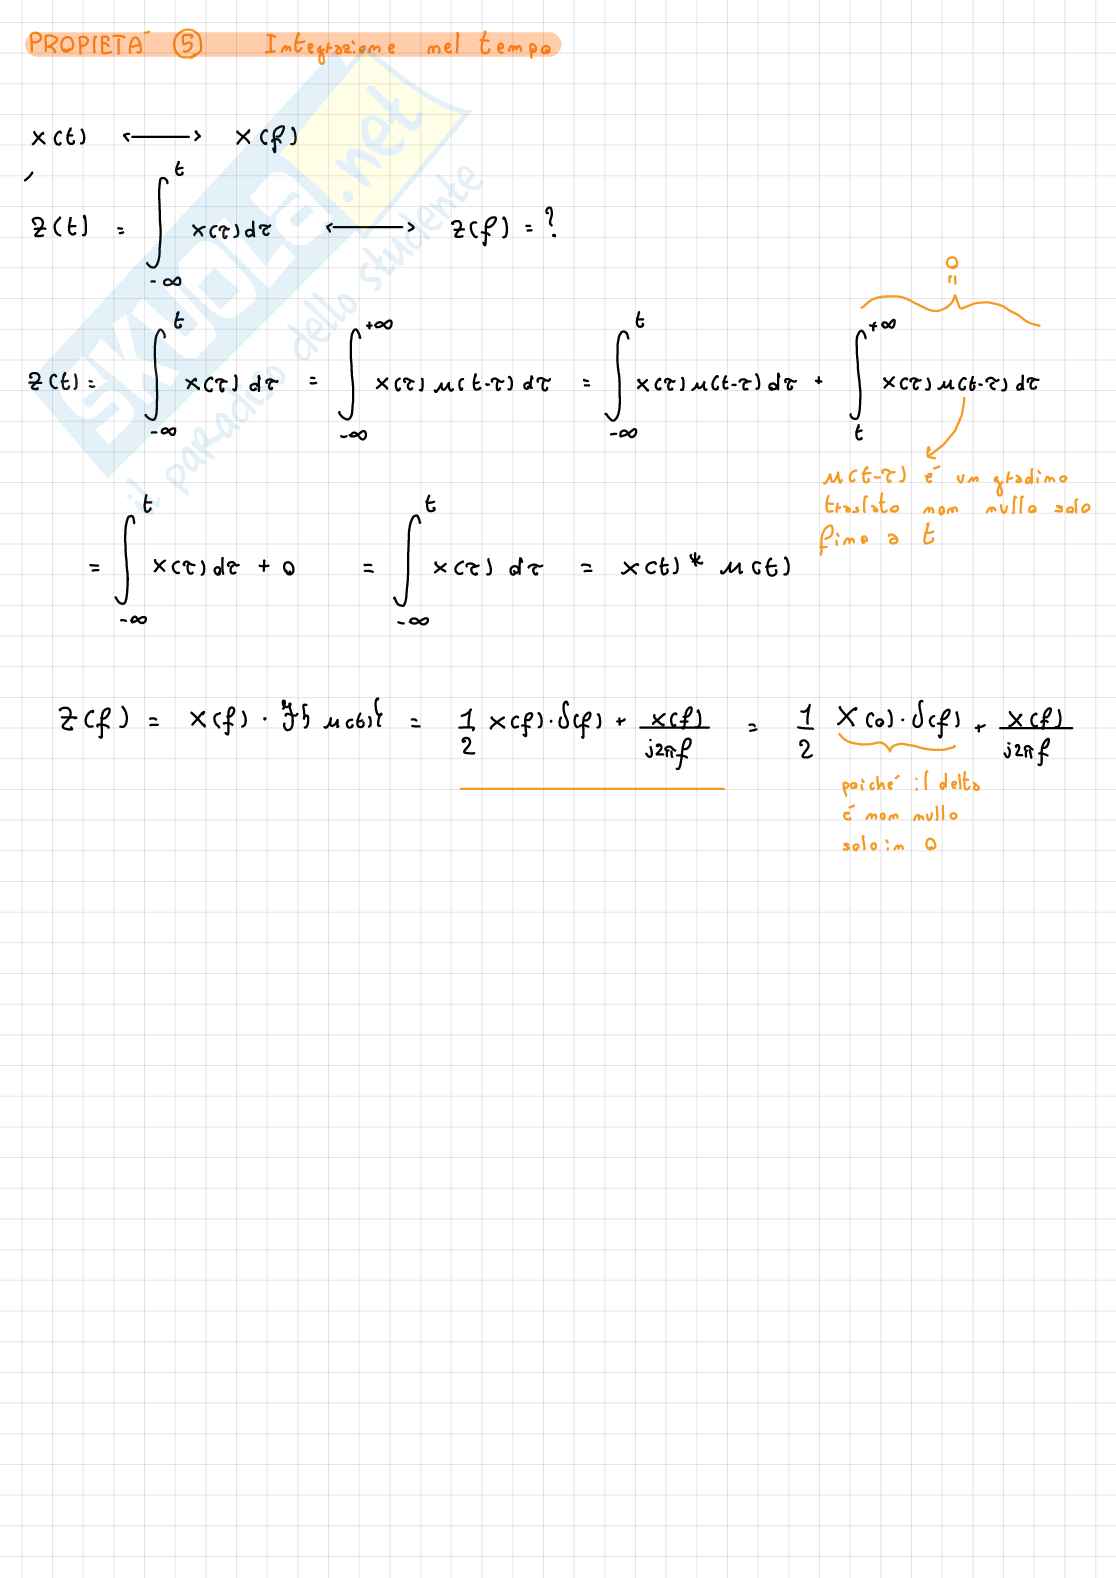 PROPIETÁ ⑤ Integrazione nel tempo
x(t) ⟷ X(f)
z(t) = ∫_{-∞}^{t} x(τ)dτ ⟷ Z(f) = ?
z(t) = ∫_{-∞}^{t} x(τ) dτ = ∫_{-∞}^{+∞} x(τ) u(t-τ) dτ = ∫_{-∞}^{t} x(τ) u(t-τ) dτ + ∫_{t}^{+∞} x(τ) u(t-τ) dτ
= 0
u(t-τ) é un gradino
traslato non nullo solo
fino a t
= ∫_{-∞}^{t} x(τ) dτ + 0 = ∫_{-∞}^{t} x(τ) dτ = x(t) * u(t)
Z(f) = X(f) · F{u(t)} = 1/2 X(f) · δ(f) + X(f)/j2πf = 1/2 X(0) · δ(f) + X(f)/j2πf
poiché il delta
é non nullo
solo in 0
SKUOLA.net
il paradiso dello studente